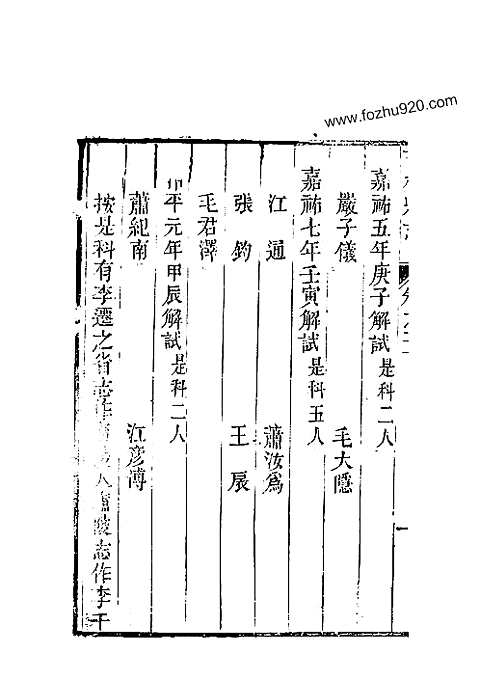 www.fozhu920.com
嘉祐五年庚子解試是科二人
嚴子儀 毛大隱
嘉祐七年壬寅解試是科五人
江通 蕭汝為
張鈞 王辰
毛君澤
平元年甲辰解試是科二人
蕭紀南 江彥博
按是科有李遷之省志作 人 陵志作李干